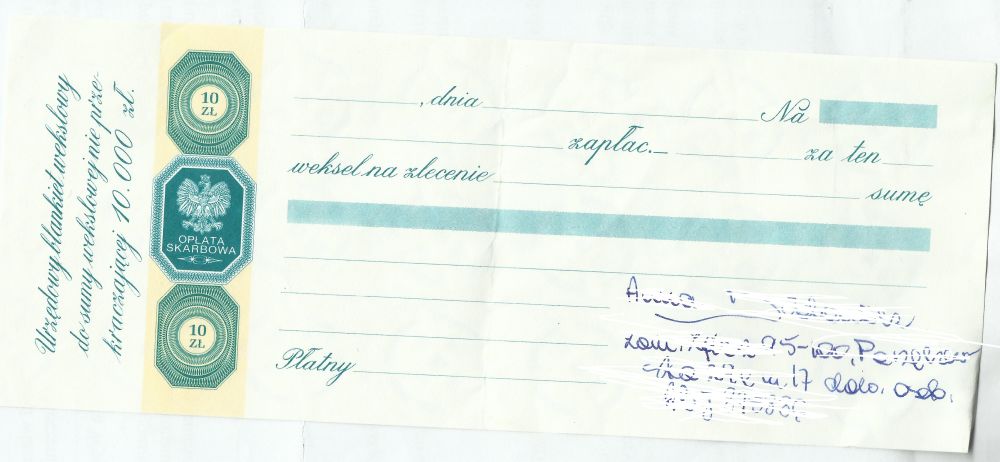 Urzędowy blankiet wekslowy
do sumy wekslowej nie prze-
kraczającej 10.000 zł.
10
ZŁ
OPŁATA
SKARBOWA
10
ZŁ
, dnia Na
zapłac. za ten
weksel na zlecenie sumę
Płatny
Anna
17 dow. osob.